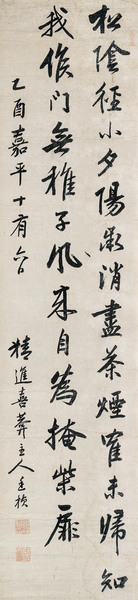 松陰徑小夕陽微消盡茶煙寉未歸知
我候門無稚子風來自為掩柴扉
乙酉嘉平十有六日
精進喜葊主人廷楨